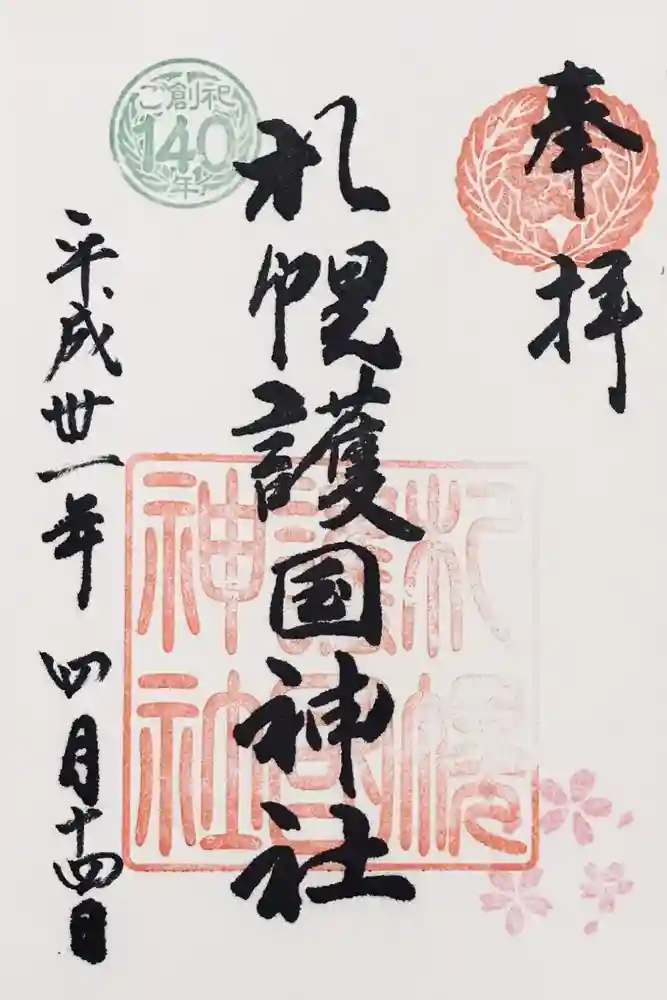 奉拝
札幌護国神社
札幌護国神社
ご創祀
140
年
平成丗一年 四月十四日